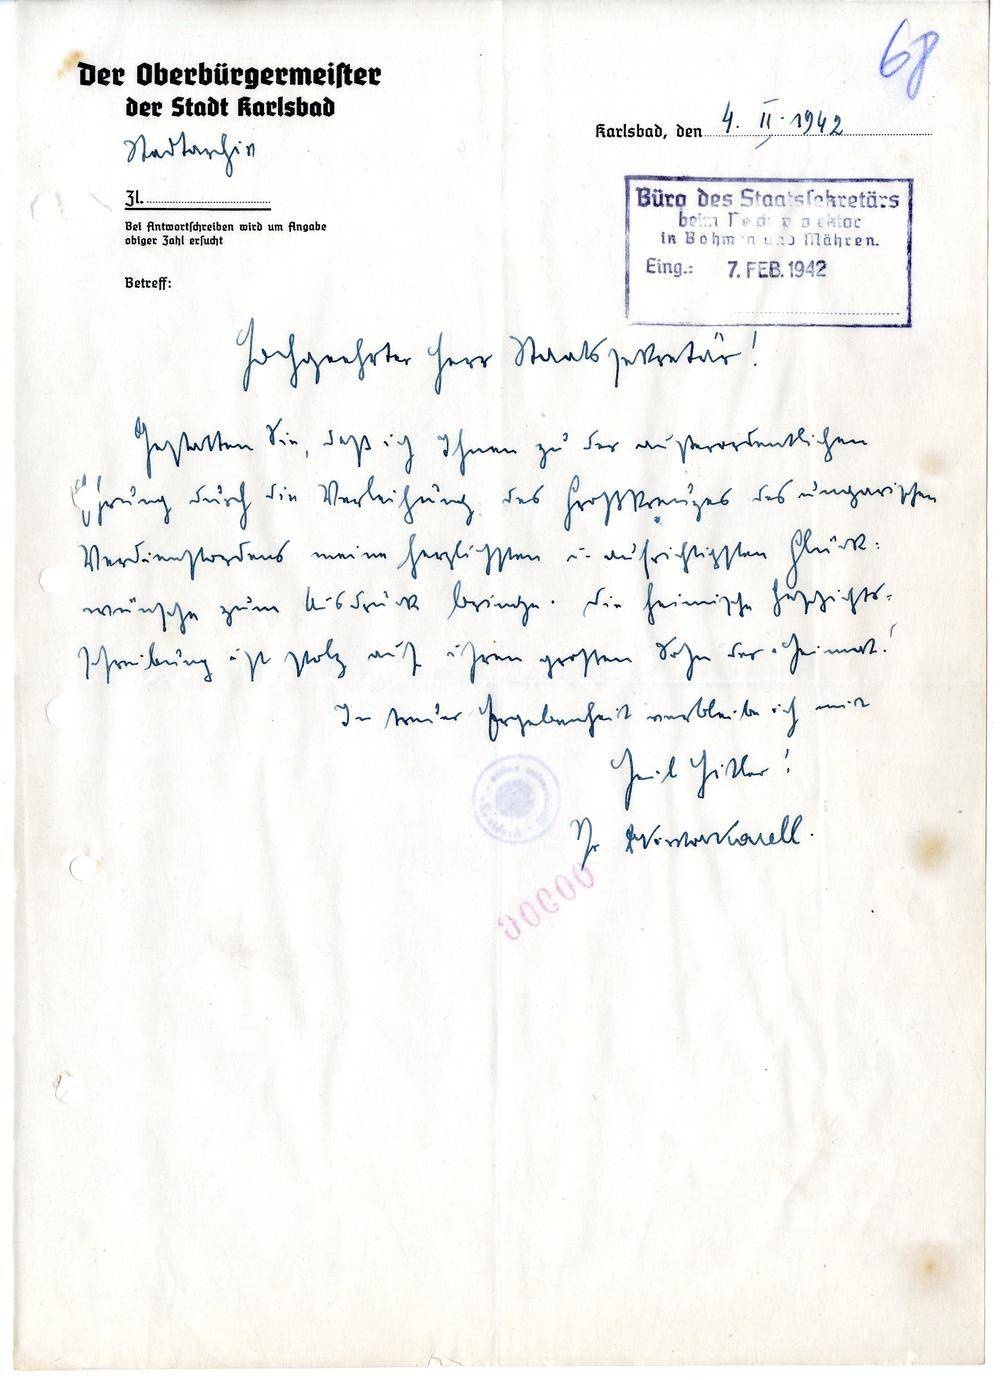 68
Der Oberbürgermeister
der Stadt Karlsbad
Stadtarchiv
Karlsbad, den 4. II. 1942
Zl.
Bei Antwortschreiben wird um Angabe
obiger Zahl ersucht
Betreff:
Büro des Staatssekretärs
beim Reichsprotektor
in Böhmen und Mähren.
Eing.: 7. FEB. 1942
Hochgeehrter Herr Staatssekretär!
Gestatten Sie, daß ich Ihnen zu der außerordentlichen
Ehrung durch die Verleihung des Großkreuzes des ungarischen
Verdienstordens meine herzlichsten u. aufrichtigsten Glück-
wünsche zum Ausdruck bringe. Die heimische Geschichts-
schreibung ist stolz auf ihren großen Sohn der Heimat!
In treuer Ergebenheit verbleibe ich mit
Heil Hitler!
Ihr Viktor Karell.